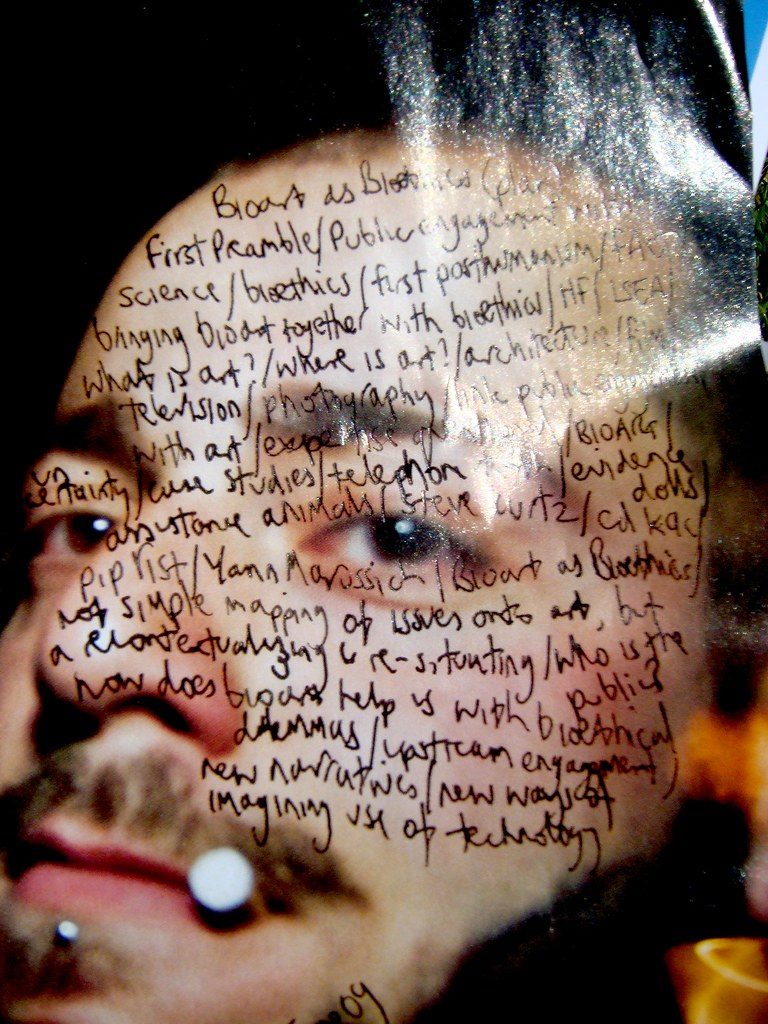 Bioart as Bioethics (plan
First Preamble/Public engagement with
science/bioethics/first posthumanism/FAC
bringing bioart together with bioethics/HF(ISEA)
what is art?/where is art?/architecture/film
television/photography/link public engagement
with art/expertise question/BIOARG/
uncertainty/case studies/telephone tooth/evidence dolls/
assistance animals/Steve Kurtz/Ed Kac/
pip rist/Yann Marussich/Bioart as Bioethics/
not simple mapping of issues onto art, but
a recontextualizing & re-situating/who is the public?
how does bioart help us with bioethical
dilemmas/upstream engagement/
new narratives/new ways of
imagining use of technology